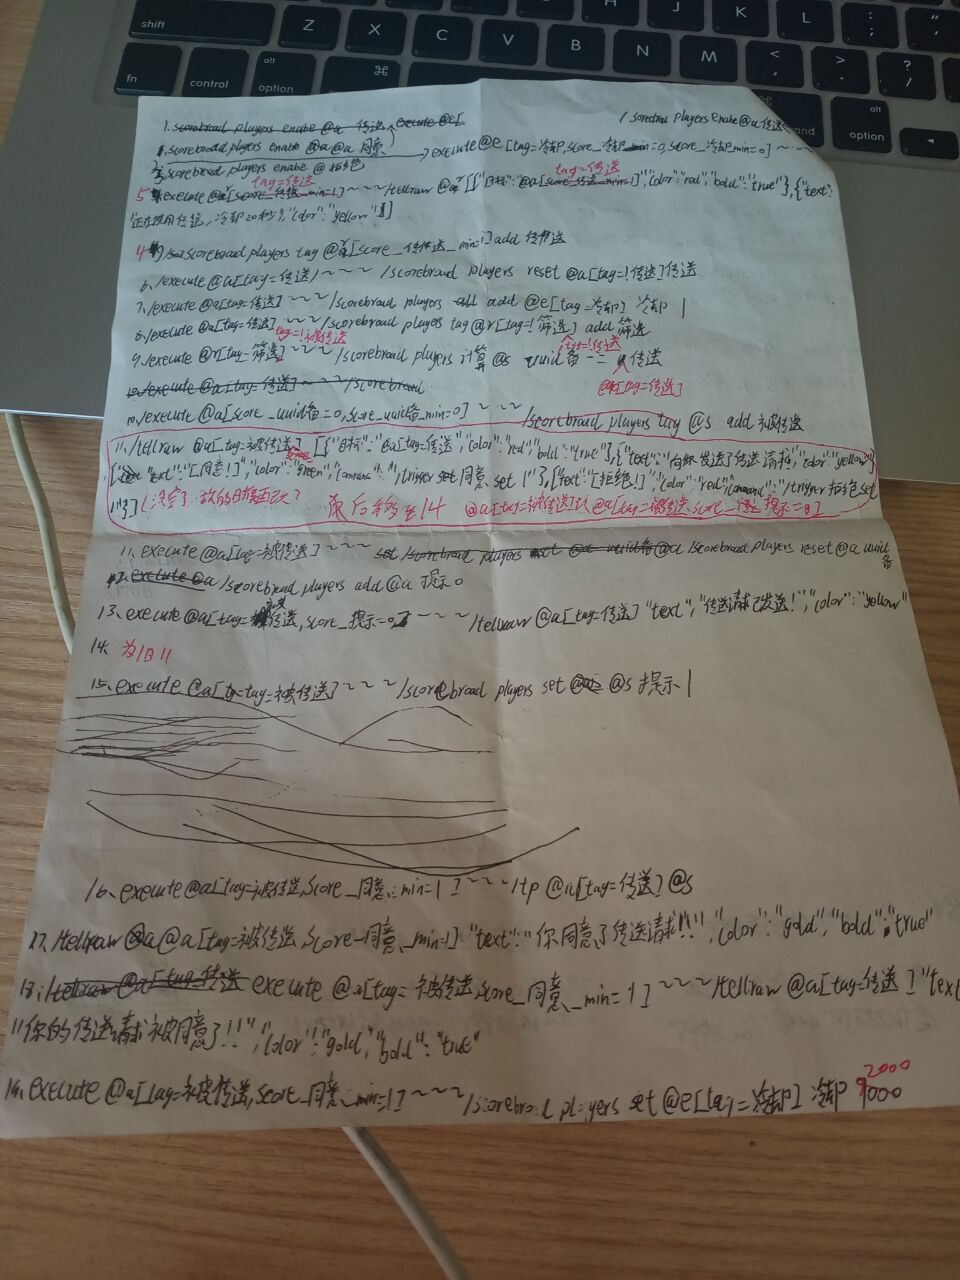 H J K L : ; " ,
shift Z X C V B N M < , > . ? /
fn control alt option ⌘ command alt option
1. scorebroad players enabe @a 传送 execute @e[
/ scorebroad players enabe @a 传送
1. scorebroad players enabe @a @a 同意 → execute @e [tag=冷却, score_冷却_min=0, score_冷却_min=0] ~ ~ ~
3. scorebroad players enabe @ 拒绝
tag=传送 tag=传送
5 execute @a[score_传送_min=1] ~ ~ ~ /tellraw @a [{"目标":"@a[score_传送_min=1]","color":"red","bold":"true"},{"text":
"正在使用传送，冷却20秒","color":"yellow"}]
4 /scorebroad players tag @a[score_传送_min=1] add 传送
6. /execute @a[tag=传送] ~ ~ ~ /scorebroad players reset @a[tag=!传送] 传送
7. /execute @a[tag=传送] ~ ~ ~ /scorebroad players add @e[tag=冷却] 冷却 1
8. /execute @a[tag=传送] ~ ~ ~ /scorebroad players tag @r[tag=!筛选] add 筛选
tag=!被传送 tag=!传送
9. /execute @r[tag=筛选] ~ ~ ~ /scorebroad players 计算 @s uuid备 -= 传送
@a[tag=传送]
10. /execute @a[tag=传送] ~ ~ ~ /scorebroad
10. /execute @a[score_uuid备=0, score_uuid备_min=0] ~ ~ ~ /scorebroad players tag @s add 被传送
11. /tellraw @a[tag=被传送] [{"目标":"@a[tag=传送","color":"red","bold":"true"},{"text":"向你发送了传送请求","color":"yellow"}
{"text":"[同意!]","color":"green","command":"/trigger 同意 set 1"},{"text":"[拒绝!]","color":"red","command":"/trigger 拒绝 set
1"}] 末后移至14 @a[tag=被传送]以@a[tag=被传送 score_提示=0]
11. execute @a[tag=被传送] ~ ~ ~ /scorebroad players reset @a uuid备
12. execute @a /scorebroad players add @a 提示 0
13. execute @a[tag=被传送, score_提示=0] ~ ~ ~ /tellraw @a[tag=传送] "text","传送请求已发送!","color":"yellow"
14. 为旧11
15. execute @a[tag=被传送] ~ ~ ~ /scorebroad players set @s 提示 1
16. execute @a[tag=被传送, score_同意_min=1] ~ ~ ~ /tp @a[tag=传送] @s
17. /tellraw @a @a[tag=被传送, score_同意_min=1] "text":"你同意了传送请求!!","color":"gold","bold":"true"
18. /tellraw @a[tag=传送 execute @a[tag=被传送, score_同意_min=1] ~ ~ ~ /tellraw @a[tag=传送] "text
"你的传送请求被同意了!!","color":"gold","bold":"true"
2000
19. execute @a[tag=被传送, score_同意_min=1] ~ ~ ~ /scorebroad players set @e[tag=冷却] 冷却 1000